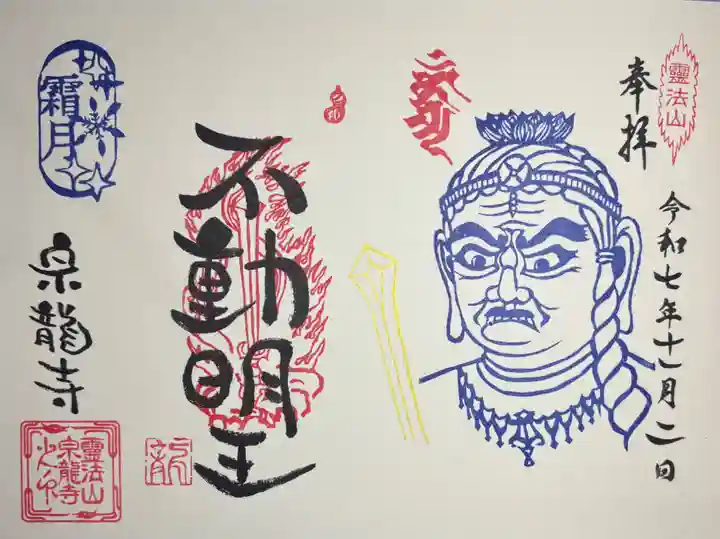 靈法山
奉拝
令和七年十一月二日
不動明王
霜月
宗龍寺
靈法山
宗龍寺